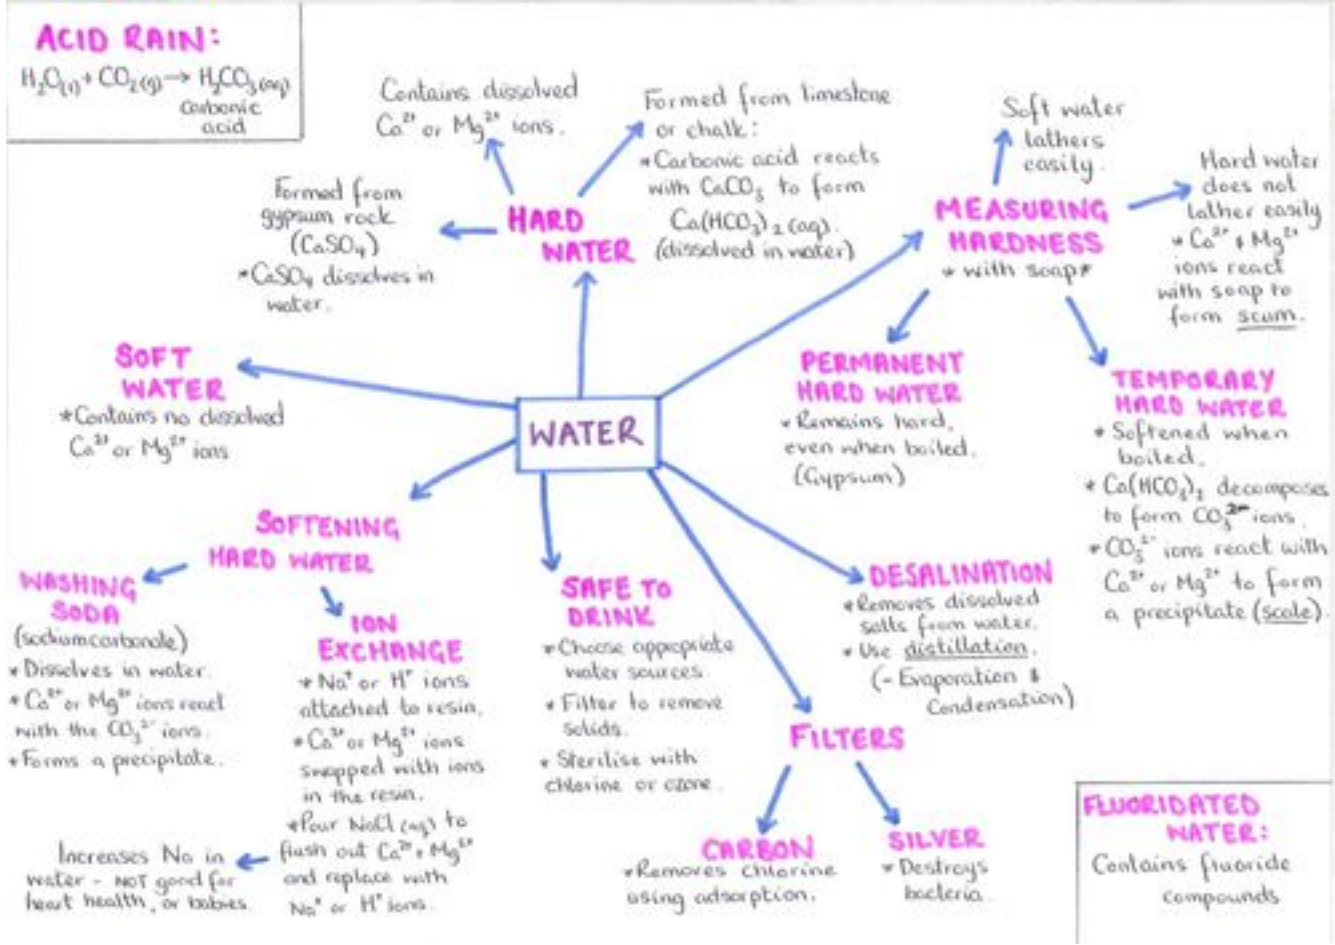 ACID RAIN:
H₂O(l) + CO₂(g) → H₂CO₃(aq)
carbonic
acid
Contains dissolved
Ca²⁺ or Mg²⁺ ions.
Formed from limestone
or chalk:
*Carbonic acid reacts
with CaCO₃ to form
Ca(HCO₃)₂(aq).
(dissolved in water)
Formed from
gypsum rock
(CaSO₄)
*CaSO₄ dissolves in
water.
HARD
WATER
Soft water
lathers
easily.
Hard water
does not
lather easily
* Ca²⁺ & Mg²⁺
ions react
with soap to
form scum.
MEASURING
HARDNESS
* with soap*
SOFT
WATER
*Contains no dissolved
Ca²⁺ or Mg²⁺ ions
WATER
PERMANENT
HARD WATER
* Remains hard,
even when boiled.
(Gypsum)
TEMPORARY
HARD WATER
* Softened when
boiled.
* Ca(HCO₃)₂ decomposes
to form CO₃²⁻ ions.
* CO₃²⁻ ions react with
Ca²⁺ or Mg²⁺ to form
a precipitate (scale).
SOFTENING
HARD WATER
WASHING
SODA
(sodium carbonate)
* Dissolves in water.
* Ca²⁺ or Mg²⁺ ions react
with the CO₃²⁻ ions.
* Forms a precipitate.
ION
EXCHANGE
* Na⁺ or H⁺ ions
attached to resin.
* Ca²⁺ or Mg²⁺ ions
swapped with ions
in the resin.
*Pour NaCl(aq) to
flush out Ca²⁺ & Mg²⁺
and replace with
Na⁺ or H⁺ ions.
Increases Na in
water - NOT good for
heart health, or babies.
SAFE TO
DRINK
* Choose appropriate
water sources.
* Filter to remove
solids.
* Sterilise with
chlorine or ozone.
DESALINATION
*Removes dissolved
salts from water.
* Use distillation.
(- Evaporation &
Condensation)
FILTERS
CARBON
*Removes chlorine
using adsorption.
SILVER
* Destroys
bacteria.
FLUORIDATED
WATER:
Contains fluoride
compounds